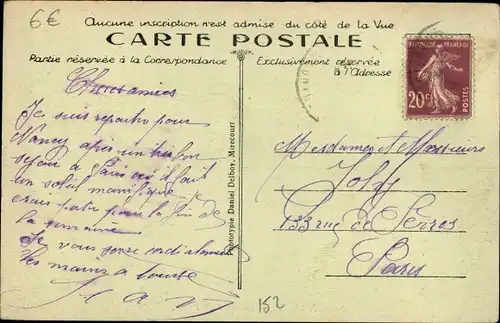 6€
Aucune inscription n'est admise du côté de la Vue
CARTE POSTALE
Partie réservée à la Correspondance
Exclusivement réservée
à l'Adresse
RÉPUBLIQUE FRANÇAISE
20c
POSTES
Chers amies
Je suis repartie pour
Nancy après un très bon
séjour à Paris où il fait
un soleil magnifique je
crois partir pour la fin de
la semaine
Je vous
les mains à toutes
Phototypie Daniel Delboy, Mirecourt
Mesdames et Messieurs
Joly
133 rue de
Paris
152